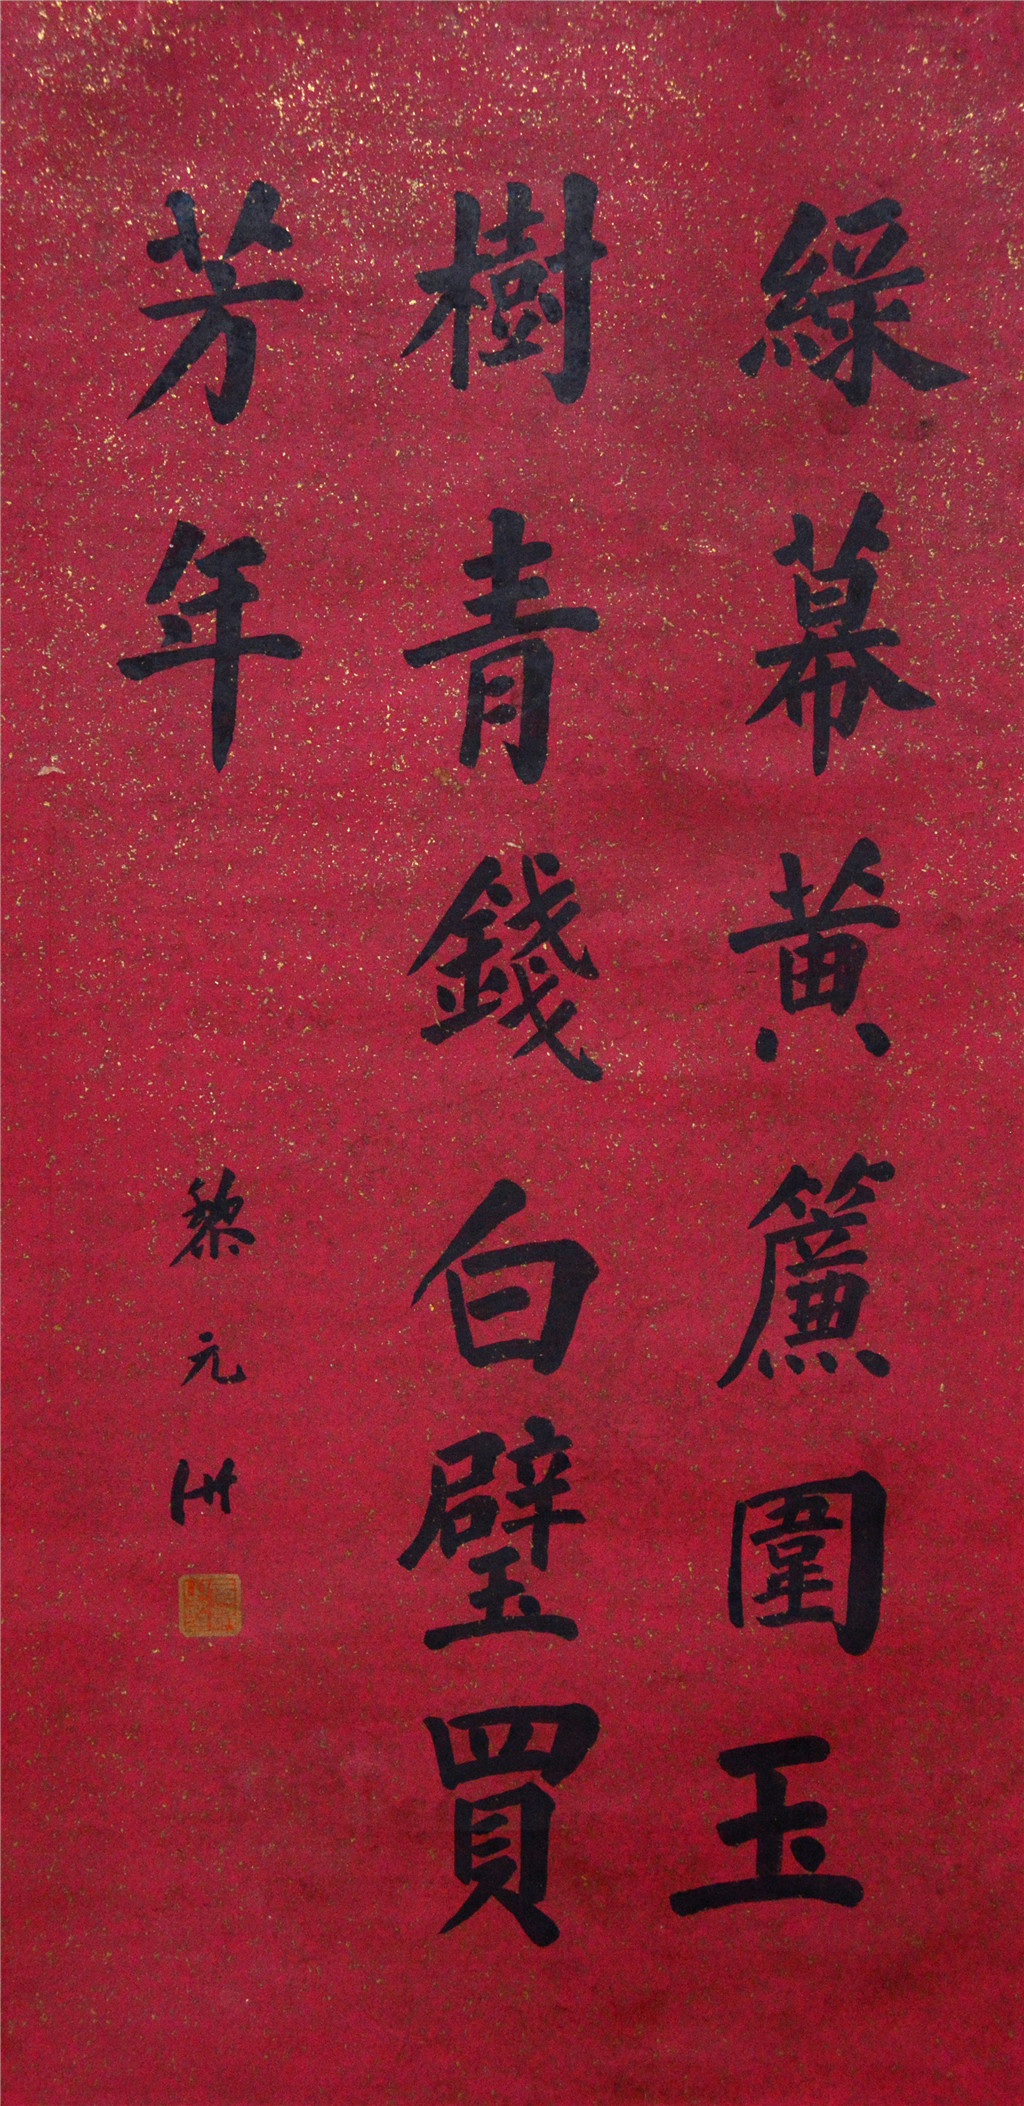 綵幕黄簾圍玉
樹青錢白璧買
芳年
黎元洪